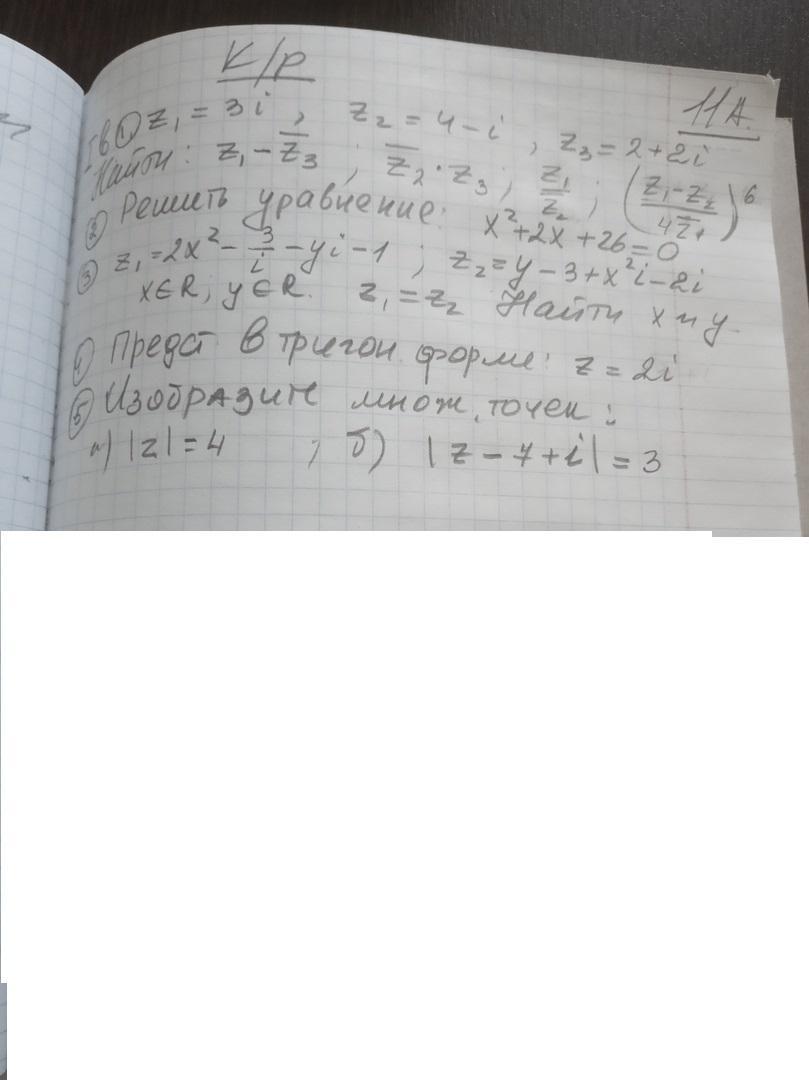 К/Р
11А.
1в ① z₁ = 3i , z₂ = 4 - i , z₃ = 2 + 2i
Найти: z₁ - z̅₃ ; z̅₂ · z₃ ; z₁/z₂ ; ((z₁ - z₂)/(4z̅₁))⁶
② Решить уравнение: x² + 2x + 26 = 0
③ z₁ = 2x² - 3/i - yi - 1 ; z₂ = y - 3 + x²i - 2i
x ∈ R; y ∈ R. z₁ = z₂ Найти x и y.
④ Предст в тригон форме: z = 2i
⑤ Изобразите множ. точек:
а) |z| = 4 ; б) |z - 7 + i| = 3